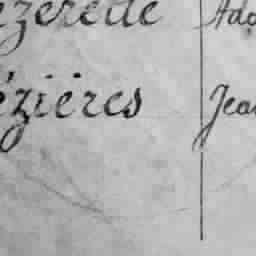 ézerette Ado
ézières Jean